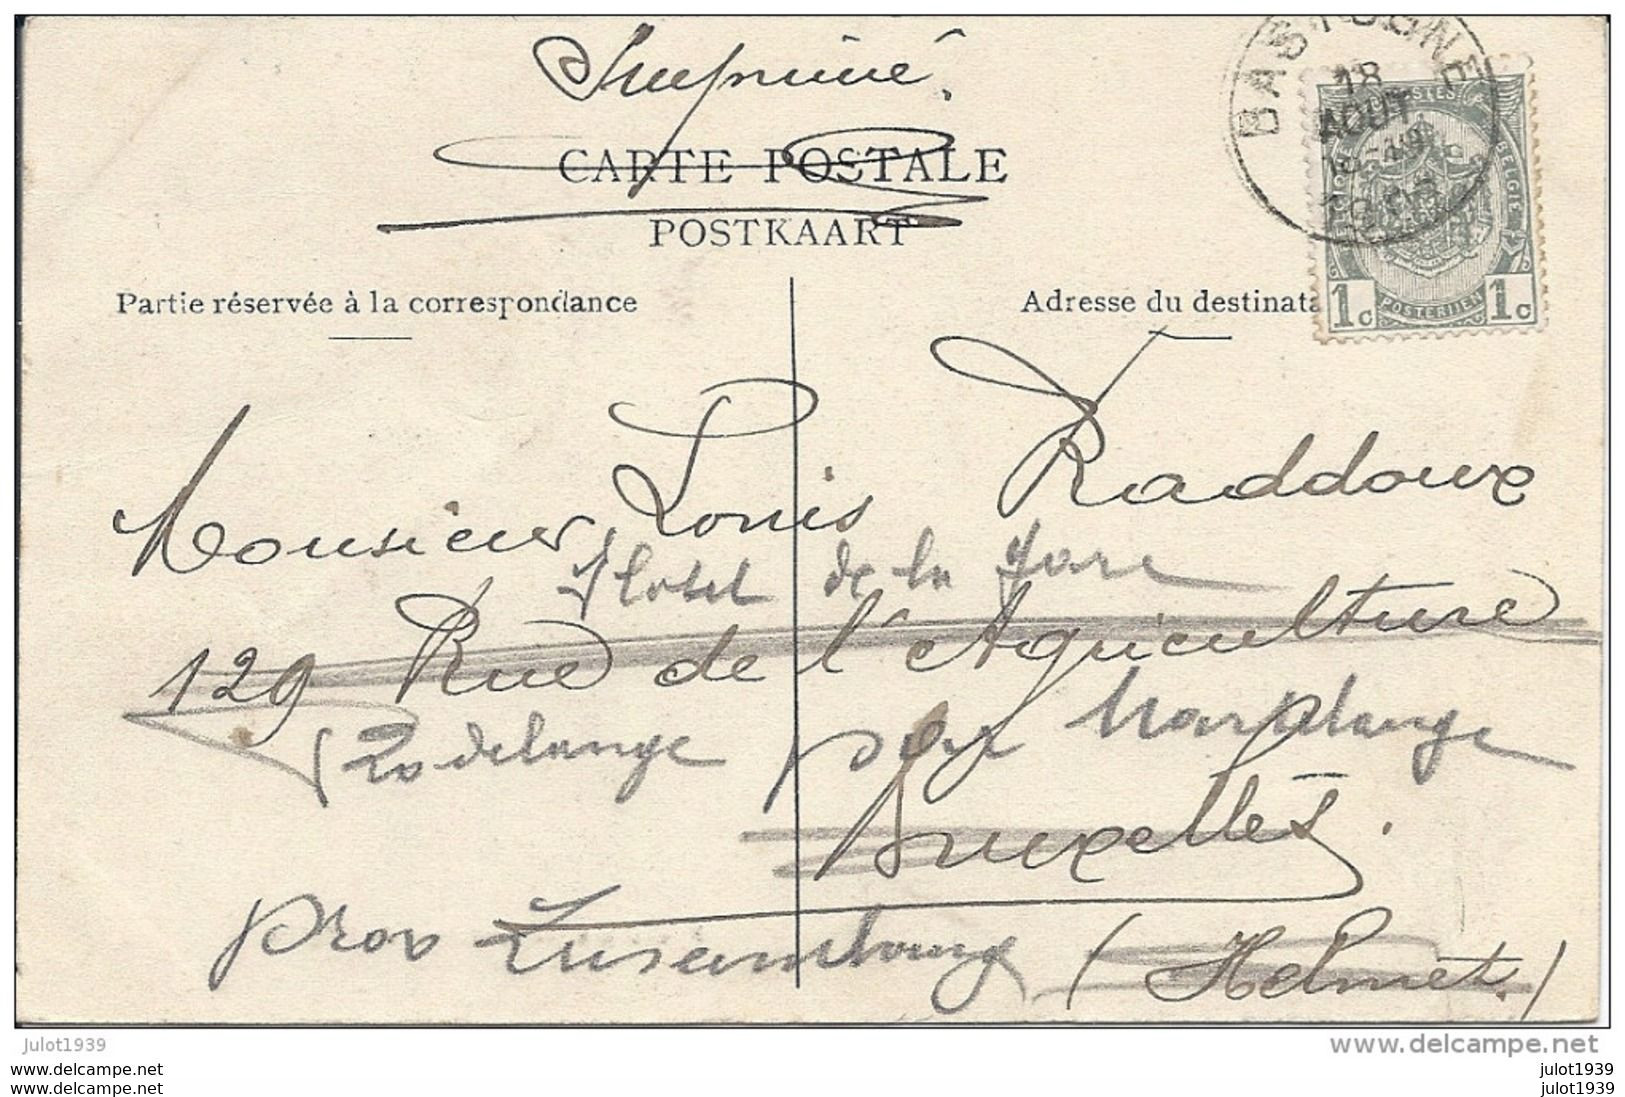 Imprimé.
BASTOGNE
18
AOUT
POSTES
BELGIQUE
BELGIË
CARTE POSTALE
POSTKAART
Partie réservée à la correspondance
Adresse du destinata
1c POSTERIJEN 1c
Monsieur Louis Raddoux
Hotel de la Gare
129 Rue de l'Agriculture
Rodelange par Martelange
Bruxelles.
prov Luxembourg
(Helmet.)
www.delcampe.net
julot1939
julot1939
julot1939
julot1939
julot1939